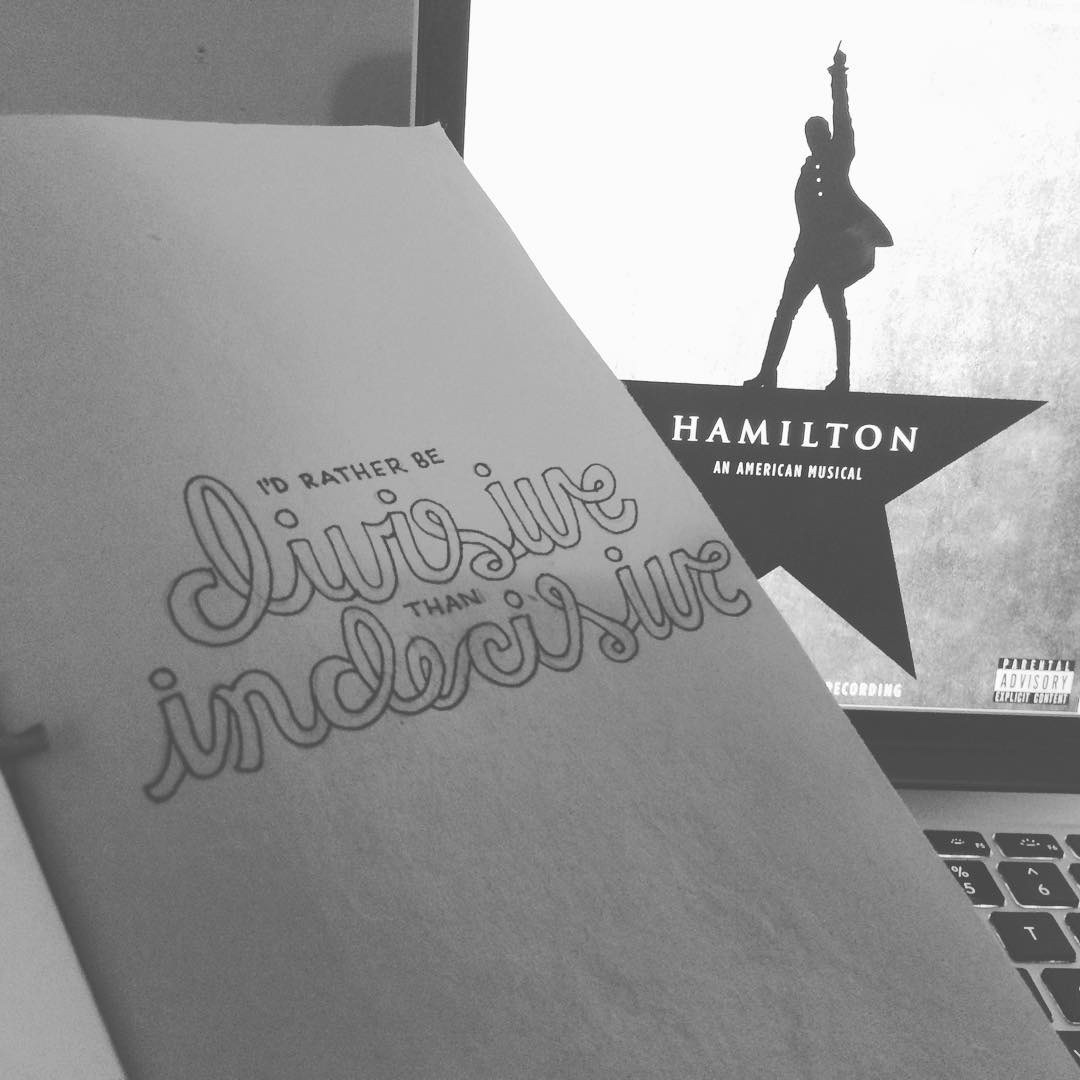 I'D RATHER BE
divisive
THAN
indecisive
HAMILTON
AN AMERICAN MUSICAL
RECORDING
PARENTAL
ADVISORY
EXPLICIT CONTENT
F5 F6
% 5 ^ 6
T